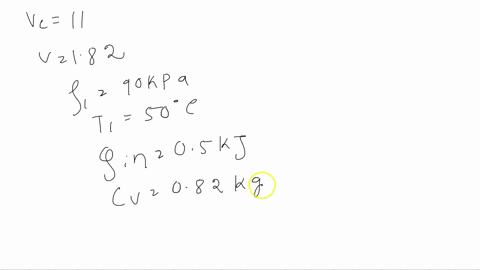 Vc = 11
V = 1.82
P1 = 90KPa
T1 = 50°C
Qin = 0.5KJ
Cv = 0.82 Kg